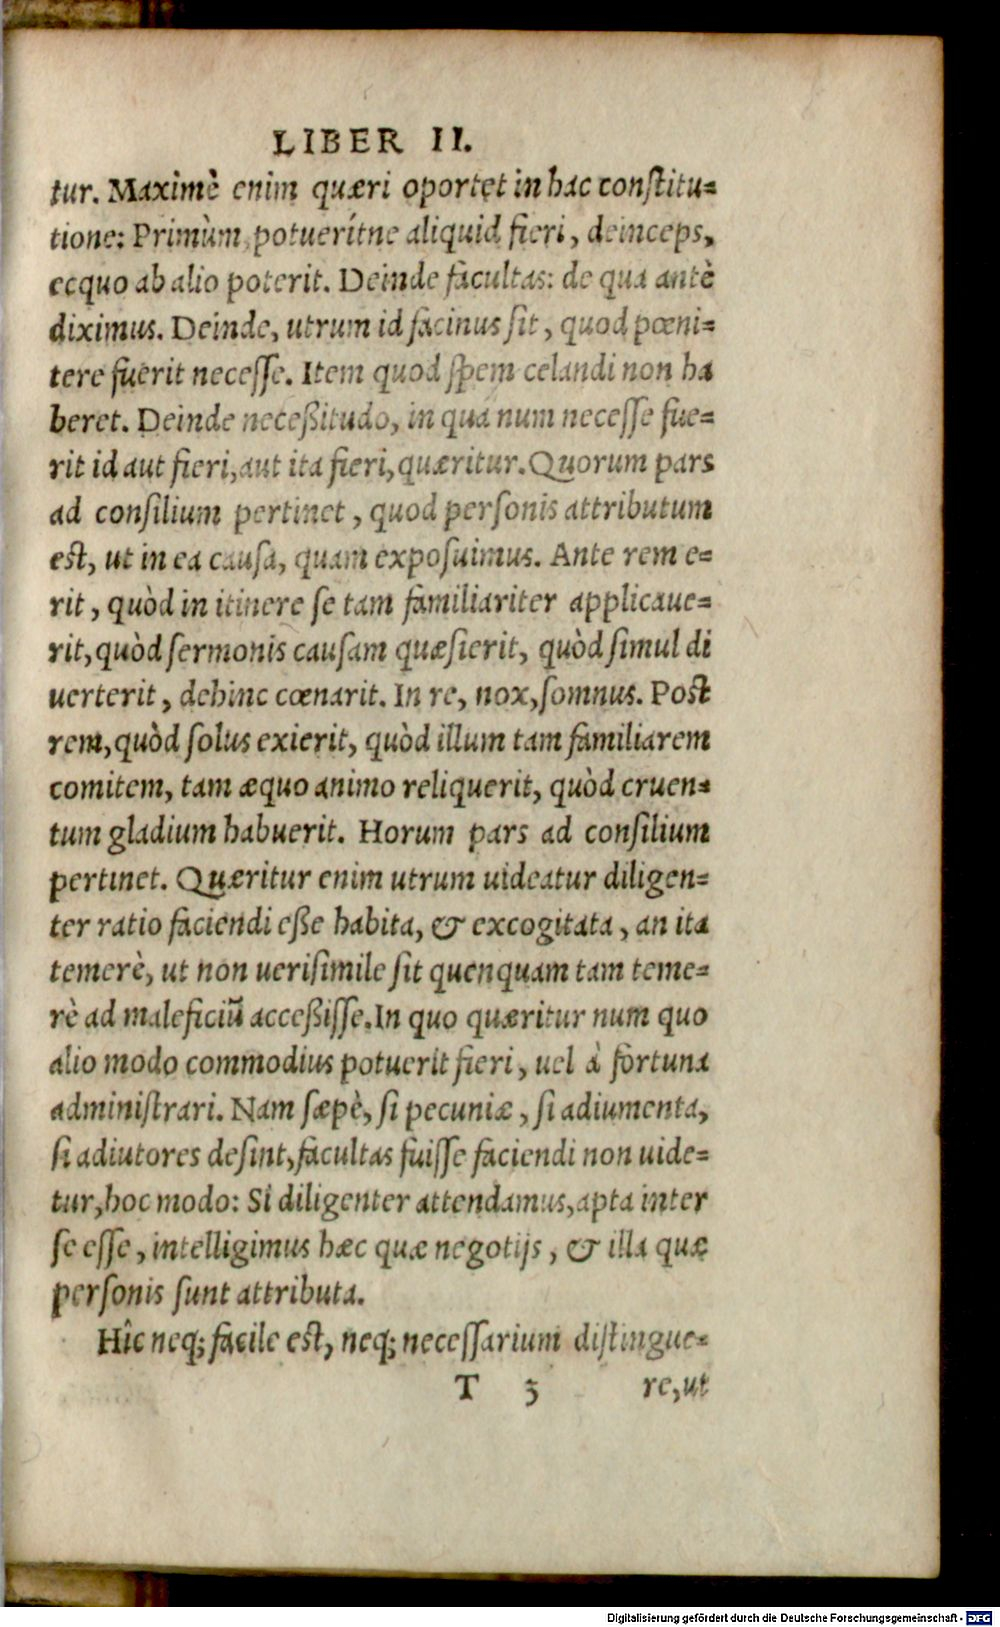 LIBER II.
tur. Maximè enim quæri oportet in hac constitu=
tione: Primùm, potuerítne aliquid fieri, deinceps,
ecquo ab alio poterit. Deinde facultas: de qua antè
diximus. Deinde, utrum id facinus sit, quod pœni=
tere fuerit necesse. Item quod spem celandi non ha
beret. Deinde neceßitudo, in qua num necesse fue=
rit id aut fieri, aut ita fieri, quæritur. Quorum pars
ad consilium pertinet, quod personis attributum
est, ut in ea causa, quam exposuimus. Ante rem e=
rit, quòd in itinere se tam familiariter applicaue=
rit, quòd sermonis causam quæsierit, quòd simul di
uerterit, dehinc cœnarit. In re, nox, somnus. Post
rem, quòd solus exierit, quòd illum tam familiarem
comitem, tam æquo animo reliquerit, quòd cruen=
tum gladium habuerit. Horum pars ad consilium
pertinet. Quæritur enim utrum uideatur diligen=
ter ratio faciendi eße habita, & excogitata, an ita
temerè, ut non uerisimile sit quenquam tam teme=
rè ad maleficiū acceßisse. In quo quæritur num quo
alio modo commodius potuerit fieri, uel à fortuna
administrari. Nam sæpè, si pecuniæ, si adiumenta,
si adiutores desint, facultas fuisse faciendi non uide=
tur, hoc modo: Si diligenter attendamus, apta inter
se esse, intelligimus hæc quæ negotijs, & illa quæ
personis sunt attributa.
Hîc neq; facile est, neq; necessarium distingue=
T 3 re, ut
Digitalisierung gefördert durch die Deutsche Forschungsgemeinschaft - DFG